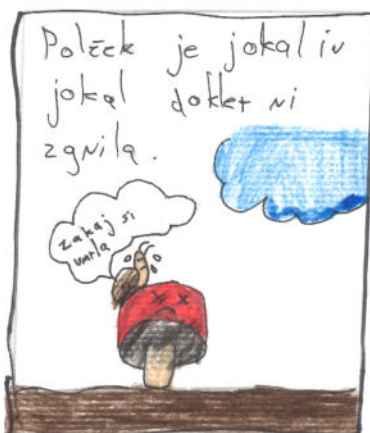 Polžek je jokal in
jokal dokler ni
zgnila.
zakaj si
umrla